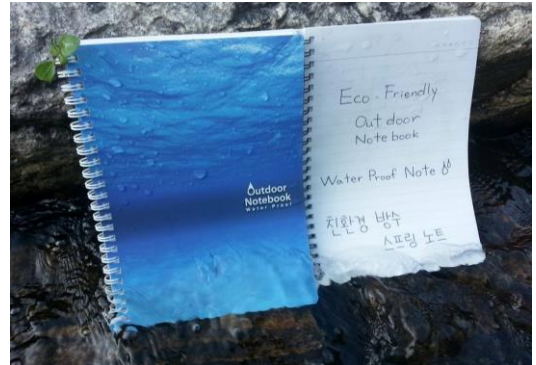 Outdoor
Notebook
Water Proof
Eco-Friendly
Outdoor
Note book
Water Proof Note
친환경 방수
스프링 노트